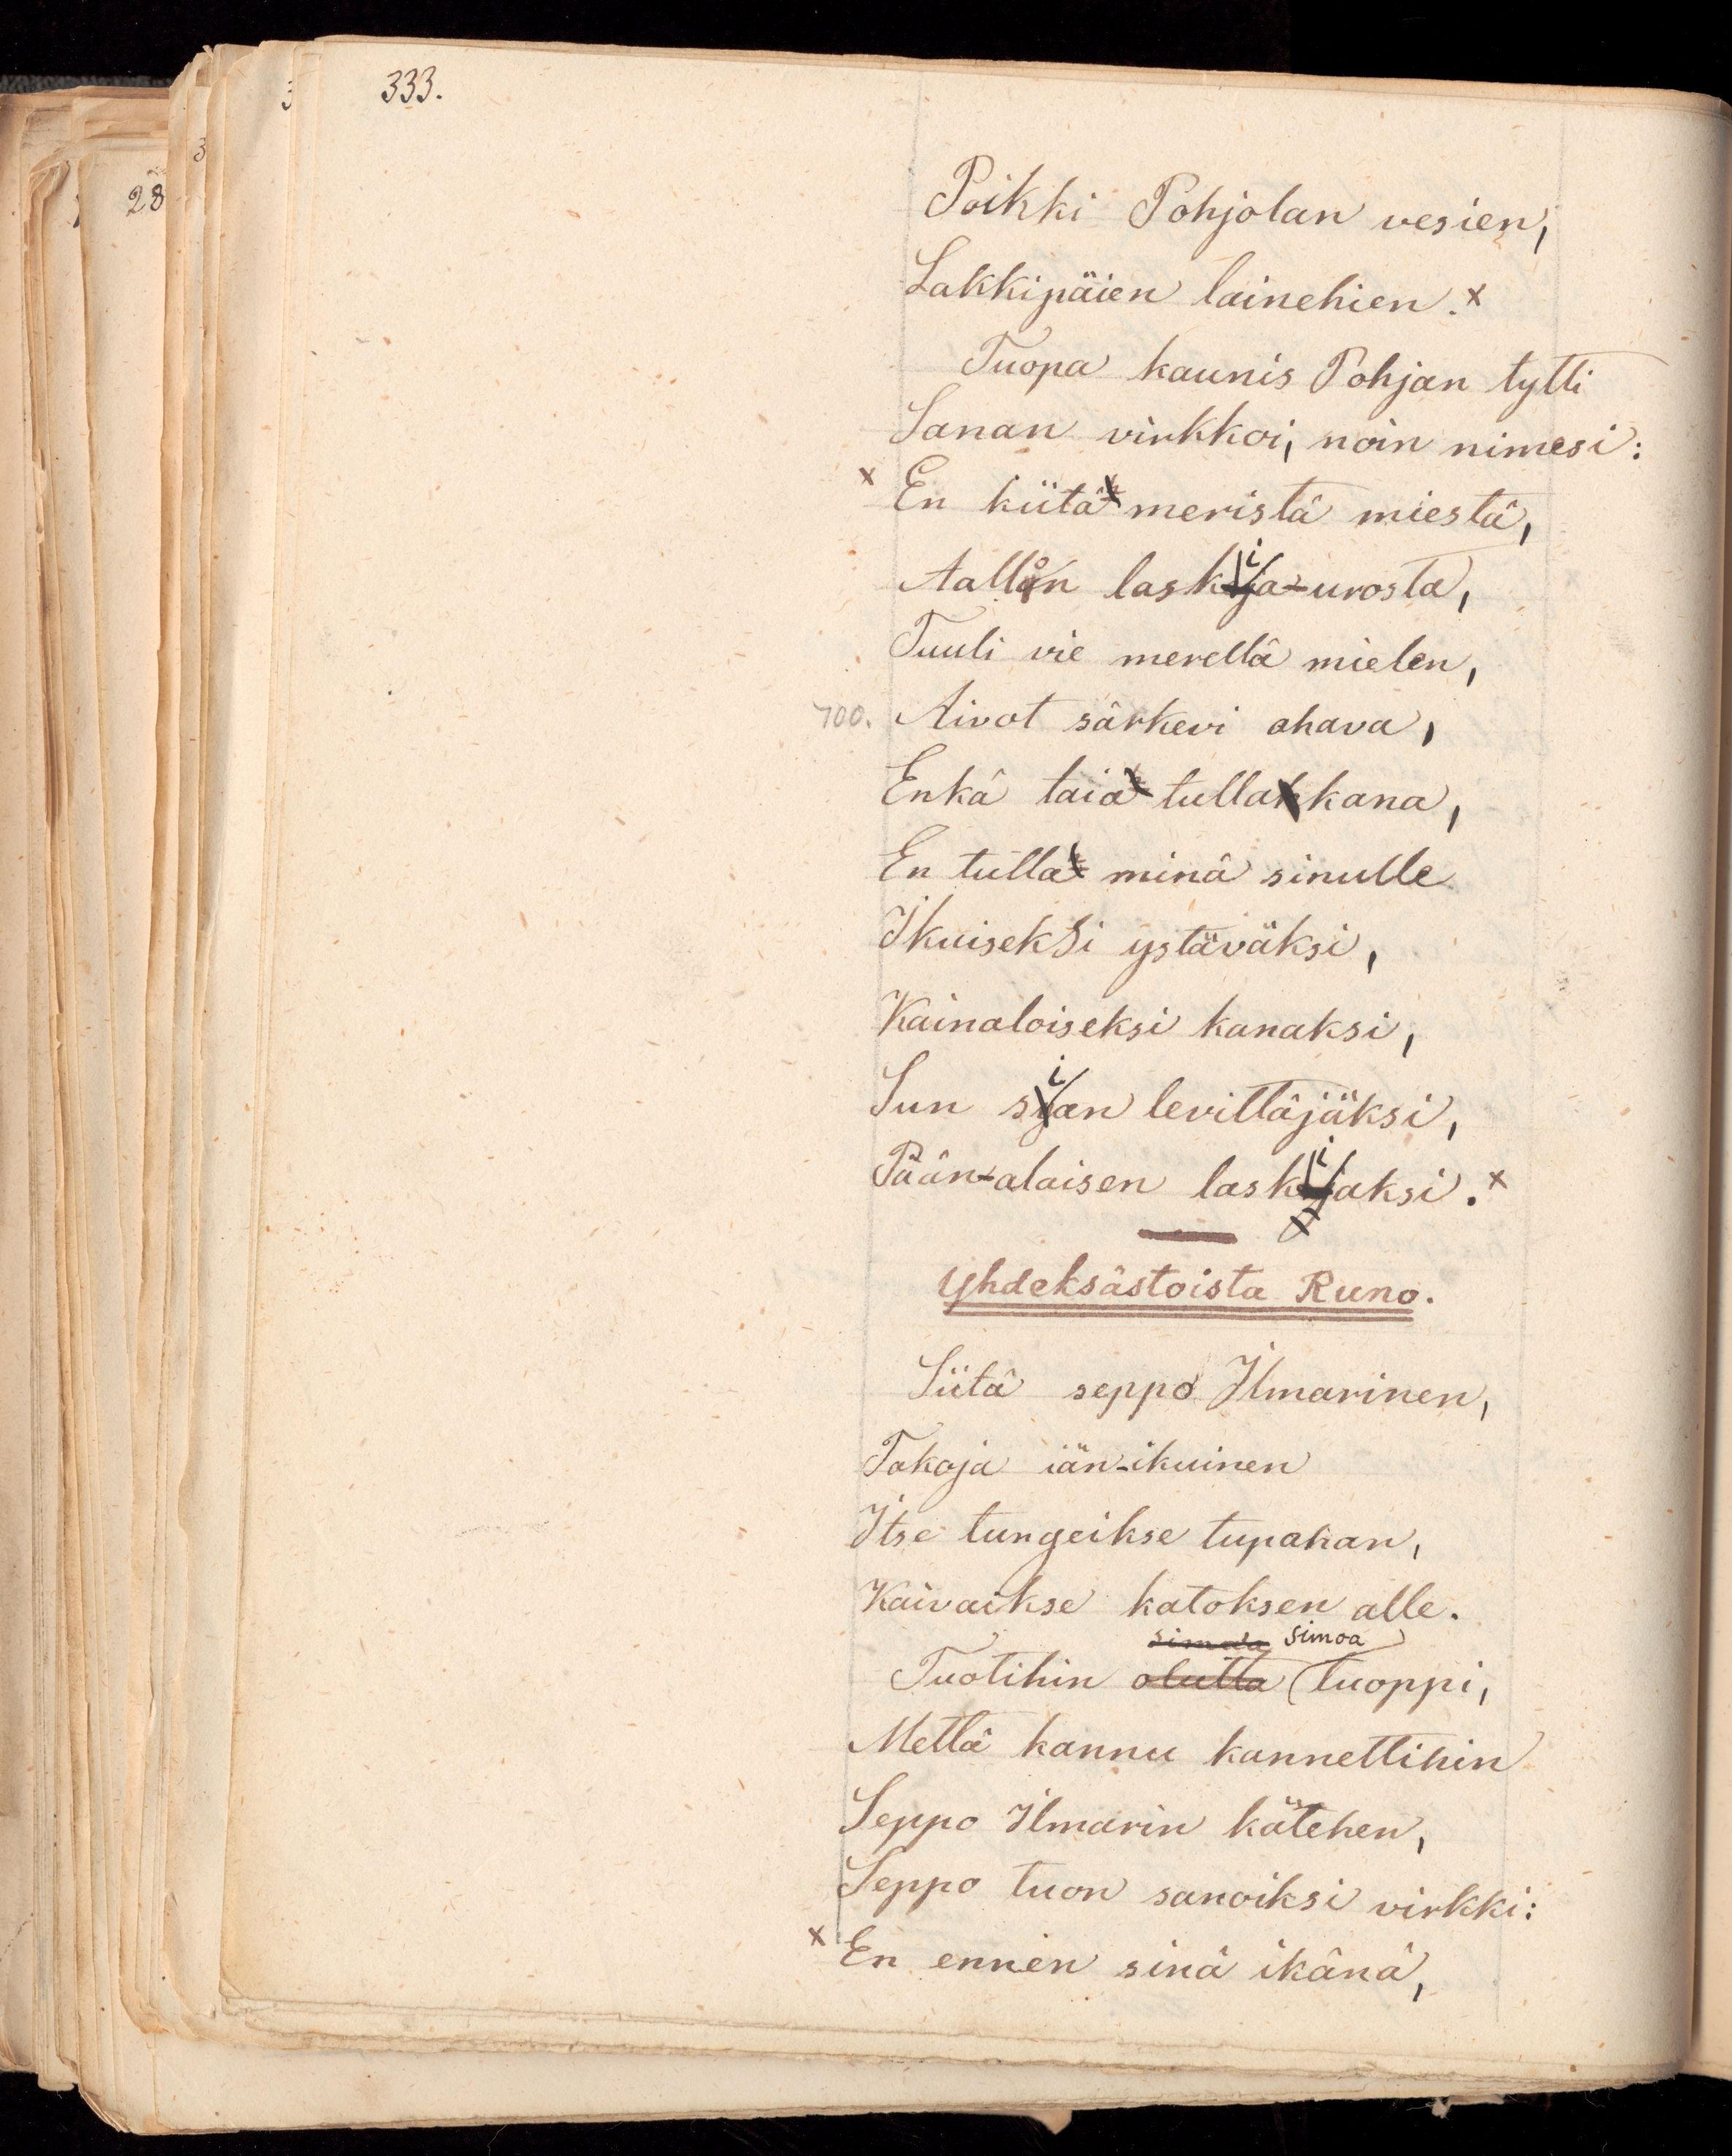 333.
28
Poikki Pohjolan vesien,
Lakkipäien lainehien.x
Tuopa kaunis Pohjan tytti
Sanan virkkoi, noin nimesi:
x En kiitä meristä miestä,
Aallon laskija-urosta,
Tuuli vie merellä mielen,
700. Aivot särkevi ahava,
Enkä taia tullakana,
En tulla minä sinulle
Ikuiseksi ystäväksi,
Kainaloiseksi kanaksi,
Sun sian levittäjäksi,
Pään-alaisen laskiaksi.x
x
Yhdeksästoista Runo.
Siitä seppo Ilmarinen,
Takoja iän-ikuinen
Itse tungeikse tupahan,
Kaivaikse katoksen alle.
simoa
Tuotihin olutta tuoppi,
Mettä kannu kannettihin
Seppo Ilmarin kätehen,
Seppo tuon sanoiksi virkki:
x En ennen sinä ikänä,